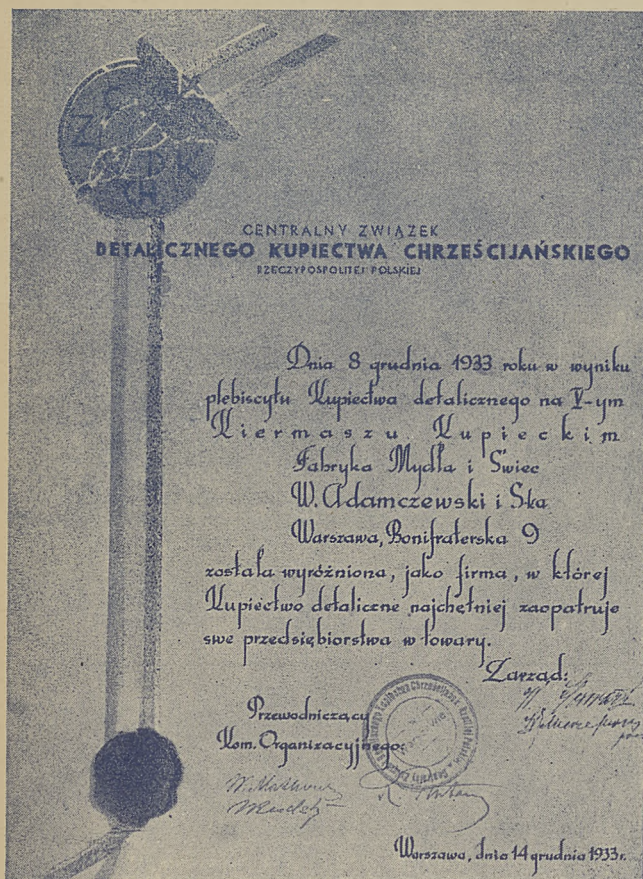 CENTRALNY ZWIĄZEK
DETALICZNEGO KUPIECTWA CHRZEŚCIJAŃSKIEGO
RZECZYPOSPOLITEJ POLSKIEJ
Dnia 8 grudnia 1933 roku w wyniku
plebiscytu Kupiectwa detalicznego na V-ym
Kiermaszu Kupieckim
Fabryka Mydła i Świec
W. Adamczewski i Ska
Warszawa, Bonifraterska 9
została wyróżniona, jako firma, w której
Kupiectwo detaliczne najchętniej zaopatruje
swe przedsiębiorstwa w towary.
Zarząd:
Przewodniczący
Kom. Organizacyjnego:
Warszawa, dnia 14 grudnia 1933r.